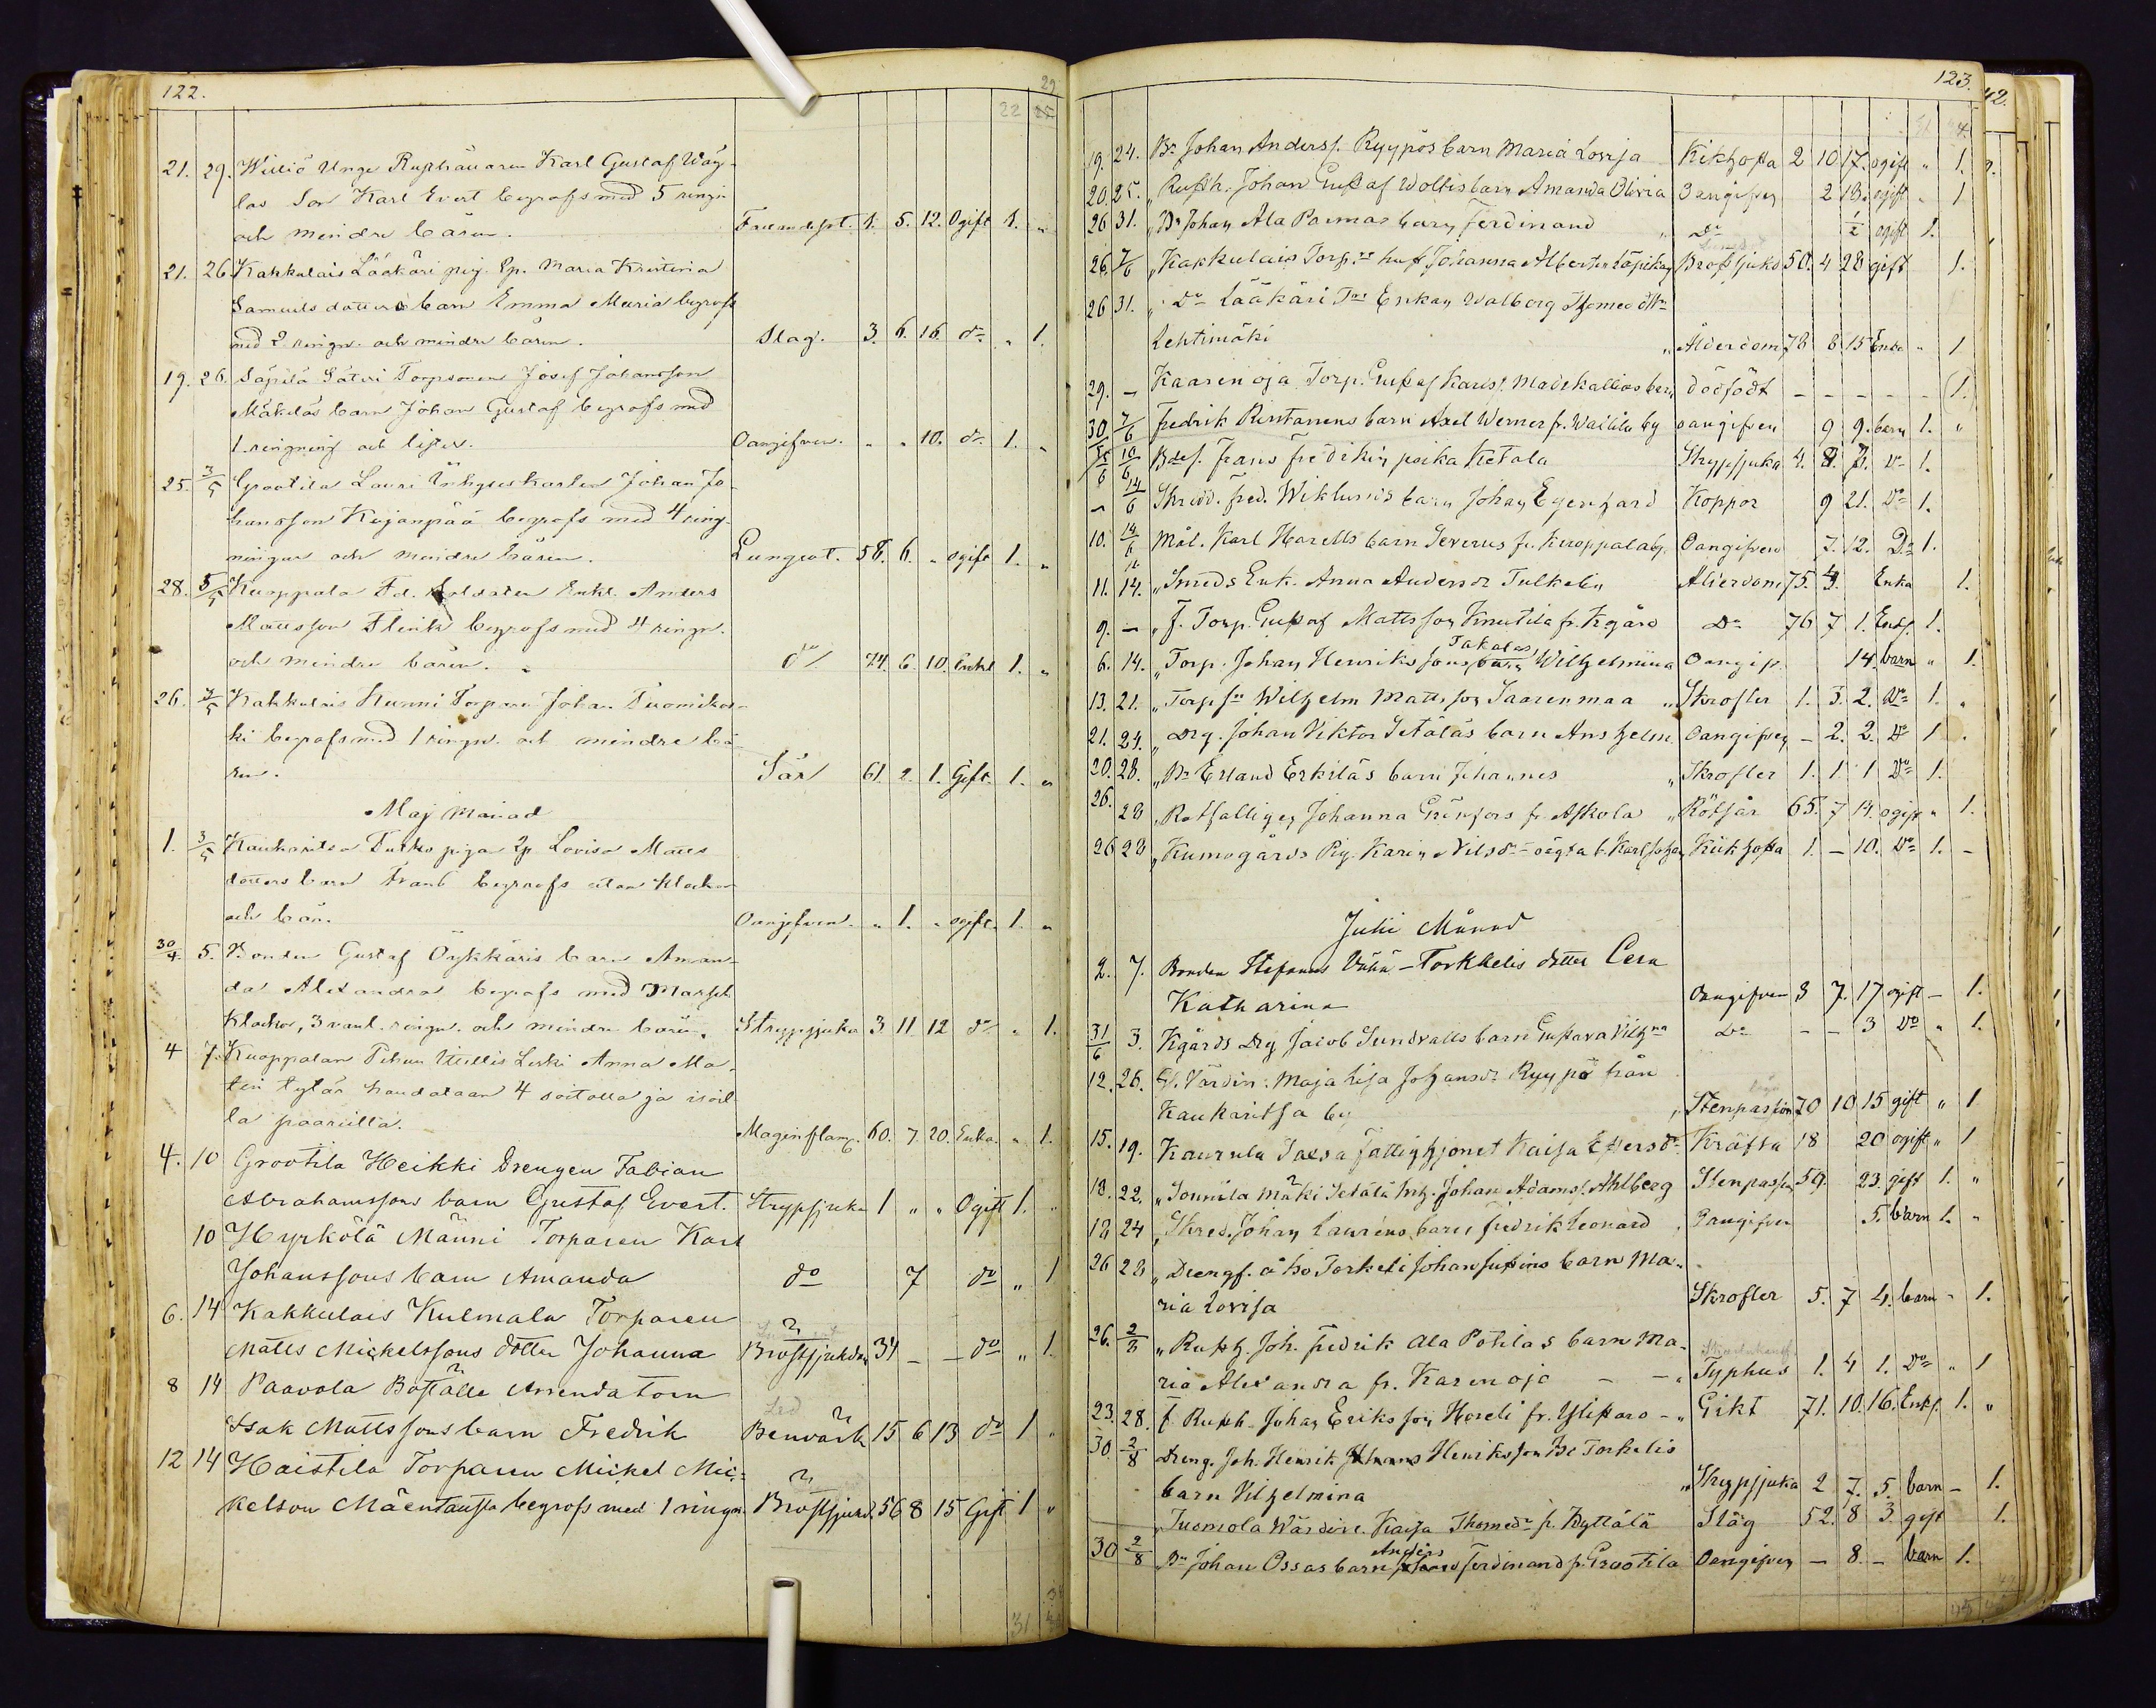 122.
29
22 25
21. 29. Williö Unge Rusthållaren Karl Gustaf Wäy-
las Son Karl Evert begrofs med 5 ringn.
och mindre båren. 1. 5. 12. Ogift 1. "
21. 26 Kakkulais Lääkäri pig. Ep. Maria Kristina
Samuels dotters barn Emma Maria begrofs
med 2 ringn. och mindre båren. Slag. 3. 6. 16. do " 1.
19. 26. Säpilä Säteri Torparen Josef Johansson
Mäkeläs barn Johan Gustaf begrofs med
1 ringning och Oangifven. " " 10. do 1. "
25. 3/5 Grootila Lauri Johan Jo-
hansson Kujanpää begrofs med 4 ring-
ningar och mindre båren. Lungsot. 58. 6. " ogift 1. "
28. 5/5 Kuoppala Fd. Soldaten Enkl. Anders
Mattsson Flink begrofs med 4 ringn.
och mindre båren. do 74. 6. 10. Enkl 1. "
26. 7/5 Kakkulais Hunni Torparen Johan Tuomikos-
ki begrofs med 1 ringn. och mindre bå-
ren. Sår 61. 2. 1. Gift. 1. "
Maj Månad
1. 3/5 Kaukaritsa Turko piga Ep Lovisa Matts
dotters barn Frans begrofs utan klockor
och bår. Oangifven. " 1. " ogift. 1. "
30/4. 5. Bonden Gustaf Öykkäris barn Aman-
da Alexandra begrofs med
Klockor, 3 vanl. ringn. och mindre båren. Strypsjuka 3 11 12 do " 1.
4 7. Kuoppalan Pihun Leski Anna Ma-
tin tytär haudataan 4 soitolla ja isoil
la paarilla. Maginflam. 60. 7. 20. Enka. " 1.
4. 10 Grootila Heikki Drengen Fabian
Abrahamssons barn Gustaf Evert. Strypsjuka 1 " " Ogift 1. "
10 Hyrkölä Männi Torparen Karl
Johanssons barn Amanda do 7 do " 1
6. 14 Kakkulais Kulmala Torparen
Matts Mickelssons dotter Johanna Bröstsjukdom 34 – – do " 1.
8 14 Paavola Boställe Arrendatorn
Isak Mattssons barn Fredrik Benvärk 15 6 13 do 1 "
12 14 Haistila Torparen Mickel Mic-
kelson Mäentausta begrofs med 1 ringn. Bröstsjukd. 56 8 15 Gift 1 "
31
123.
42.
19. 24. Bd Johan Anderss. Ryypös barn Maria Lovisa Kikhosta 2 10 17. ogift " 1.
20. 25. " Rusth. Johan Gustaf Woltis barn Amanda Olivia Oangifven 2 18. ogift " 1
26 31. " Bd Johan Ala Paimas barn Ferdinand " Do 1/2 ogift 1.
26. 7/6 " Kakkulais Torp.rs hust Johanna Albertsdr Bröstsjukd 50. 4 28 gift 1.
26 31. " Do Lääkäri Enkan Walborg Thomas dtr
Lehtimäki " Ålderdom 78 8 15 Enka " 1
29. – Kaarenoja Torp. Gustaf Karlss. Madekallios barn dödfödt – – – – – 1.
30 7/6 Fredrik Rintanens barn Axel Werner fr. Wailila by oangifven 9 9. barn 1. "
10/6 Frans Fredrikin poika Ketola Strypsjuka 4. 8. 7. Do 1.
– 14/6 Skredd. Fred. Wiklunds barn Johan Egenhard Koppor 9 21. Do 1.
10. 14/6 Mål. Karl Harells barn Severus fr. Kuoppala by. Oangifven 7. 12. Do 1.
11. 14. " Smeds Enk. Anna Andersdr Tulkelin Ålderdom 75. 4. Enka 1.
9. – " f. Torp. Gustaf Mattsson Knutila fr. Kgård Do 76 7 1. Enkl. 1.
Takalas
6. 14. " Torp. Johan Henrikssons barn Wilhelmina Oangif. 14. barn " 1.
13. 21. " Torps Wilhelm Mattsson Saarenmaa " Skrofler 1. 3. 2. Do 1. "
21. 24. " Drg. Johan Viktor Setäläs barn Anshelm. Oangifven – 2. 2. Do 1 .
20. 28. " Bd Erland Erkiläs barn Johannes " Skrofler 1. 1 1 Do 1.
26. 28 " Rotfalligen Johanna Grönfors fr. Askola " Rötsår 65. 7 14. ogift " 1.
26 28 " Kumogårds Pig. Karin Nilsdr oägta b. Karl Johan Kikhosta 1. – 10. Do 1. –
Julii Månad
2. 7. Bonden Stefanus Vähä-Torkkelis dotter Cera
Katharina Oangifven 3 7. 17 ogift – 1.
31/6 3. Kgårds Drg Jacob Sundvalls barn Gustava Vilhna Do – – 3 Do " 1.
12. 26. Värdin. Maja Lisa Johansdr Ryypö från
Kaukaritsa by " Stenpassion 70 10 15 gift " 1
15. 19. Kaurula Fattighjonet Kaisa Kräfta 18 20 ogift " 1
18. 22. " Sonnila Mäki Setälä Inh. Johan Adamss. Ahlberg Stenpassion 59. 23. gift 1. "
18 24 " Skred. Johan Lauréns barn Fredrik Leonard Oangifven 5. barn 1. "
26 28 " Drengs. å Iso Torkeli Johan barn Ma-
ria Lovisa Skrofler 5. 7 4. barn – 1.
26. 2/8 " Rusth. Joh. Fredrik Ala Potilas barn Ma-
ria Alexandra fr. Karenoja – – " Typhus 1. 4 1. Do " 1
23. 28. f. Rusth. Johan Eriksson Hereli fr. Ylistaro – " Gikt 71. 10. 16. Enkl. 1. "
30. 2/8 Dreng. Joh. Henrik Henriksson Iso Torkelis
barn Vilhelmina " Strypsjuka 2 7. 5. barn – 1.
" Tuomola Wärdin. Kaisa Thomasdr fr. Pyttälä Slag 52. 8 3 gift 1.
Anders
30 2/8 " Bn Johan Ossas barn Ferdinand fr. Grootila Oangifven – 8. – barn 1.